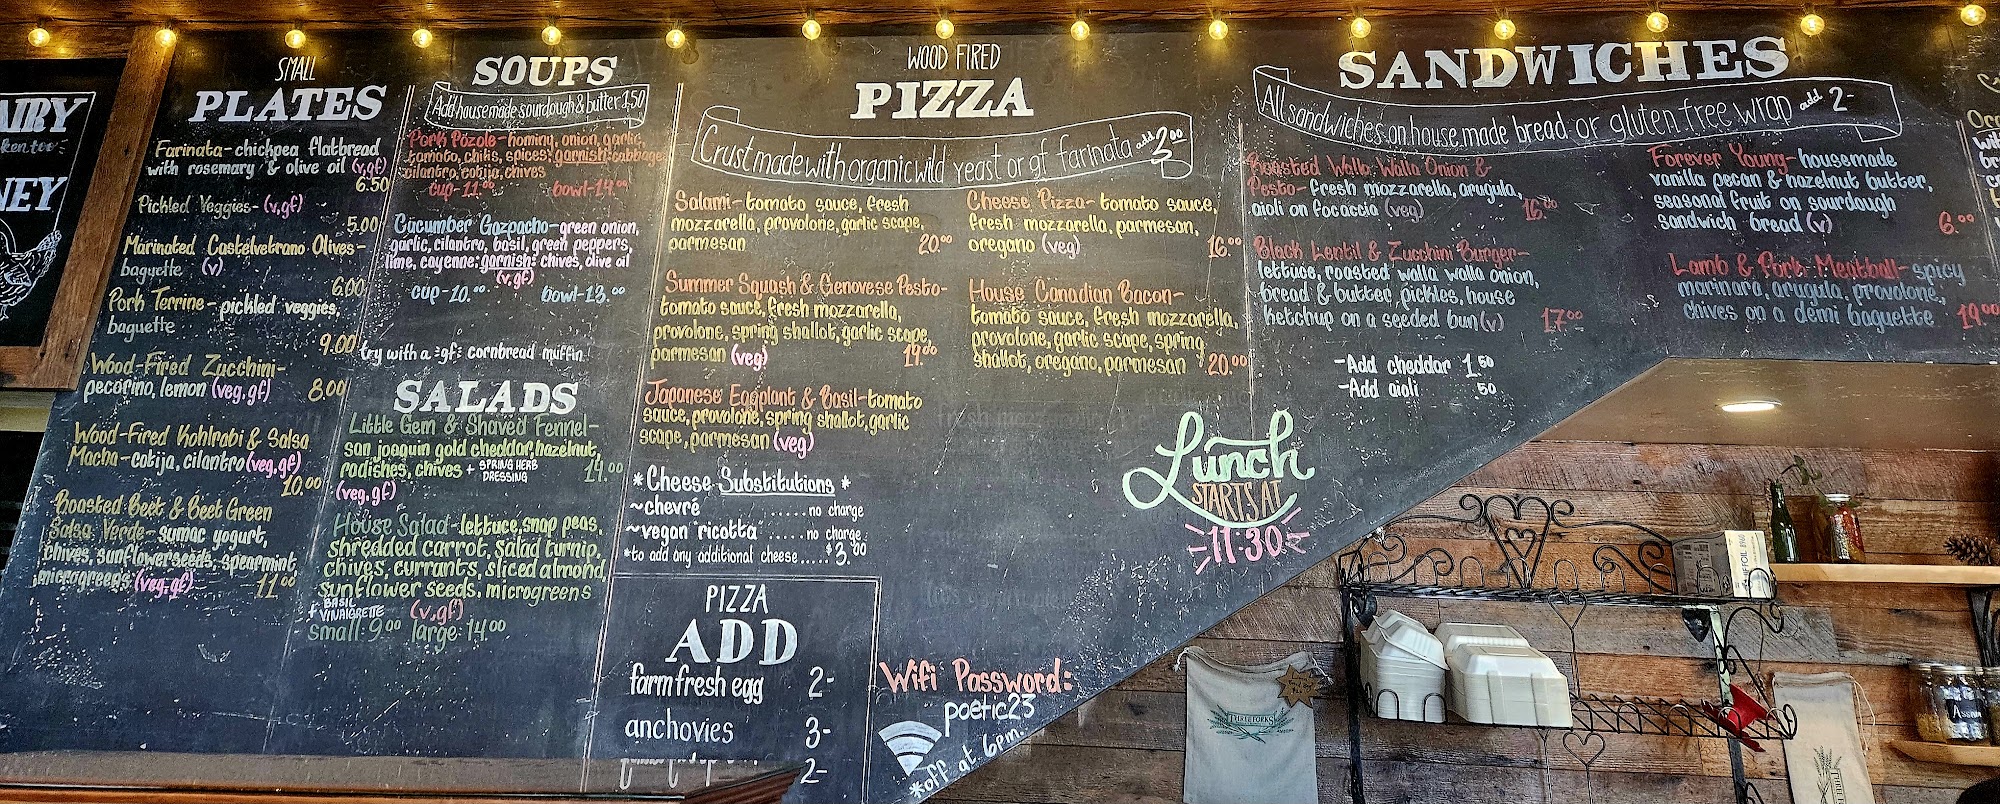 AIRY
NEY
SMALL
PLATES
Farinata-chickpea flatbread
with rosemary & olive oil (v,gf)
6.50
Pickled Veggies- (v,gf)
5.00
Marinated Castelvetrano Olives-
baguette (v)
6.00
Pork Terrine-pickled veggies,
baguette
9.00
Wood-Fired Zucchini-
pecorino, lemon (veg,gf) 8.00
Wood-Fired Kohlrabi & Salsa
Macha-cotija, cilantro (veg,gf)
10.00
Roasted Beet & Beet Green
Salsa Verde-sumac yogurt,
chives, sunflower seeds, spearmint,
microgreens (veg,gf) 11.00
SOUPS
Add housemade sourdough & butter 1.50
Pork Pozole-hominy, onion, garlic,
tomato, chilis, spices; garnish: cabbage
cilantro, cotija, chives
cup-11.00 bowl-14.00
Cucumber Gazpacho-green onion,
garlic, cilantro, basil, green peppers,
lime, cayenne; garnish: chives, olive oil
(v,gf)
cup-10.00 bowl-13.00
try with a :gf: cornbread muffin!
SALADS
Little Gem & Shaved Fennel-
san joaquin gold cheddar, hazelnut,
radishes, chives + SPRING HERB
DRESSING 14.00
(veg,gf)
House Salad-lettuce, snap peas,
shredded carrot, salad turnip,
chives, currants, sliced almond,
sunflower seeds, microgreens
+ BASIL
VINAIGRETTE (v,gf)
small: 9.00 large: 14.00
WOOD FIRED
PIZZA
Crust made with organic wild yeast or gf farinata add 3.00
Salami-tomato sauce, fresh
mozzarella, provolone, garlic scape,
parmesan 20.00
Summer Squash & Genovese Pesto-
tomato sauce, fresh mozzarella,
provolone, spring shallot, garlic scape,
parmesan (veg) 19.00
Japanese Eggplant & Basil-tomato
sauce, provolone, spring shallot, garlic
scape, parmesan (veg)
Cheese Pizza-tomato sauce,
fresh mozzarella, parmesan,
oregano (veg) 16.00
House Canadian Bacon-
tomato sauce, fresh mozzarella,
provolone, garlic scape, spring
shallot, oregano, parmesan 20.00
*Cheese Substitutions *
~chevré ......no charge
~vegan "ricotta" ......no charge
*to add any additional cheese.....$3.00
PIZZA
ADD
farm fresh egg 2-
anchovies 3-
2-
Wifi Password:
poetic23
*off at 6pm.
Lunch
STARTS AT
11:30
SANDWICHES
All sandwiches on house made bread or gluten free wrap add 2-
Roasted Walla Walla Onion &
Pesto-fresh mozzarella, arugula,
aioli on focaccia (veg) 16.00
Black Lentil & Zucchini Burger-
lettuce, roasted walla walla onion,
bread & butter pickles, house
ketchup on a seeded bun (v) 17.00
-Add cheddar 1.50
-Add aioli 50
Forever Young-housemade
vanilla pecan & hazelnut butter,
seasonal fruit on sourdough
sandwich bread (v) 6.00
Lamb & Pork Meatball-spicy
marinara, arugula, provolone,
chives on a demi baguette 19.00
THREE FORKS